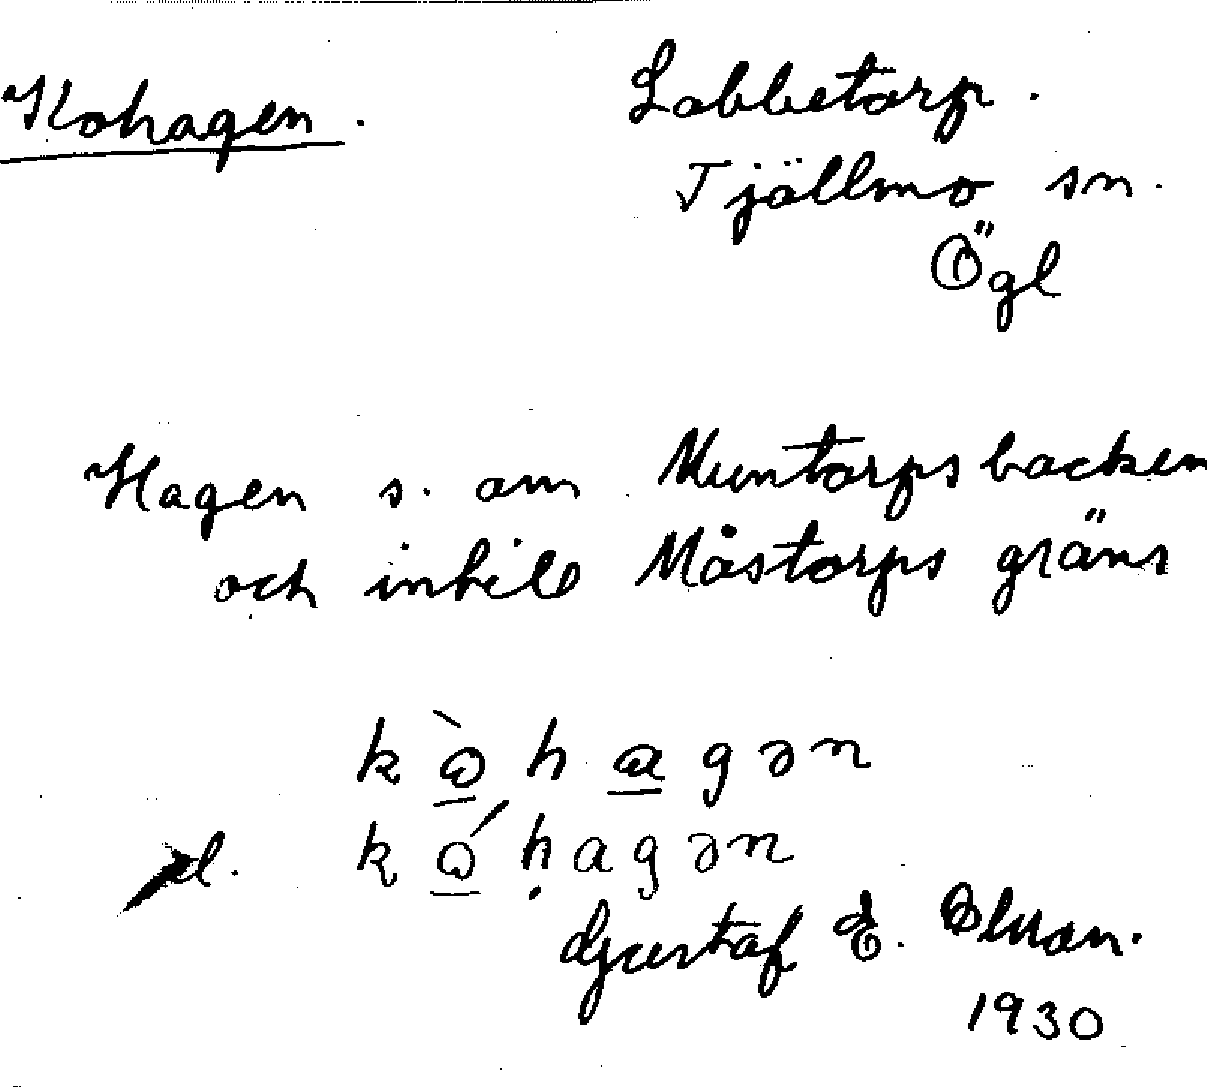 Kohagen.
Labbetorp.
Tjällmo sn.
Ögl
Hagen s. om Muntorpsbacken
och intill Måstorps gräns
kòhagən
el. kóhagən
Gustaf E. Olson.
1930